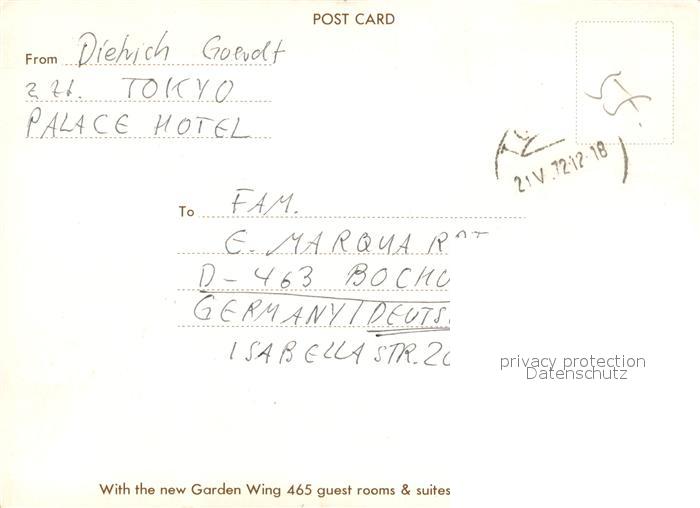 POST CARD
From Dietrich Goerdt
z Zt. TOKYO
PALACE HOTEL
21 V. 72.12-18
To FAM.
E. MARQUARDT
D-463 BOCHU
GERMANY/DEUTS
ISABELLASTR. 20
privacy protection
Datenschutz
With the new Garden Wing 465 guest rooms & suites